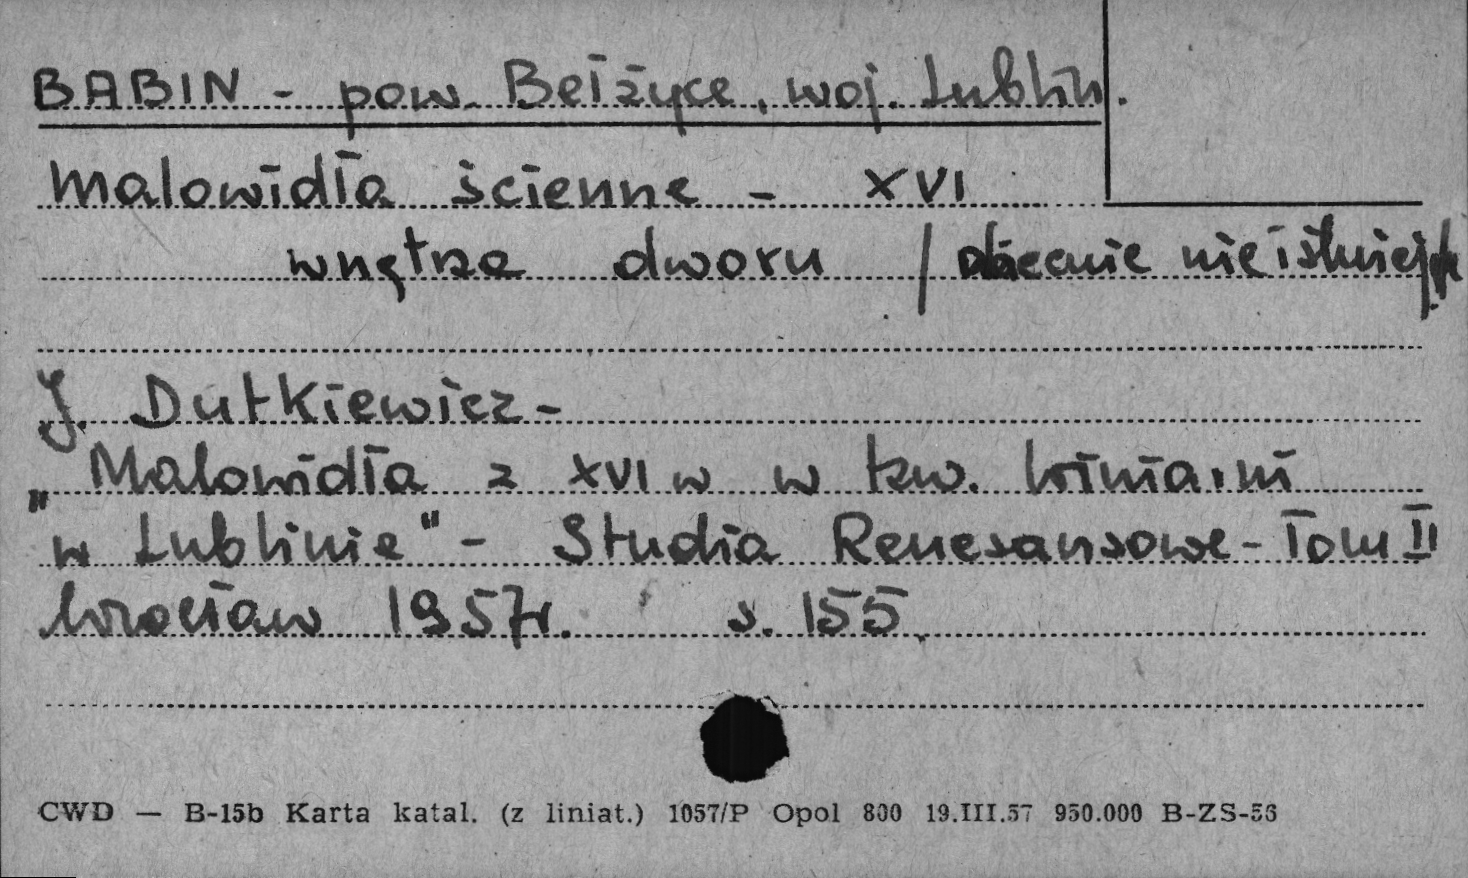 BABIN - pow. Bełżyce, woj. Lublin.
Malowidła ścienne - XVI
wnętrze dworu / obecnie nieistniej.
J. Dutkiewicz -
„Malowidła z XVI w w tzw. Winiarni
w Lublinie" - Studia Renesansowe - Tom II
Wrocław 1957r. s. 155.
CWD — B-15b Karta katal. (z liniat.) 1057/P Opol 800 19.III.57 950.000 B-ZS-56